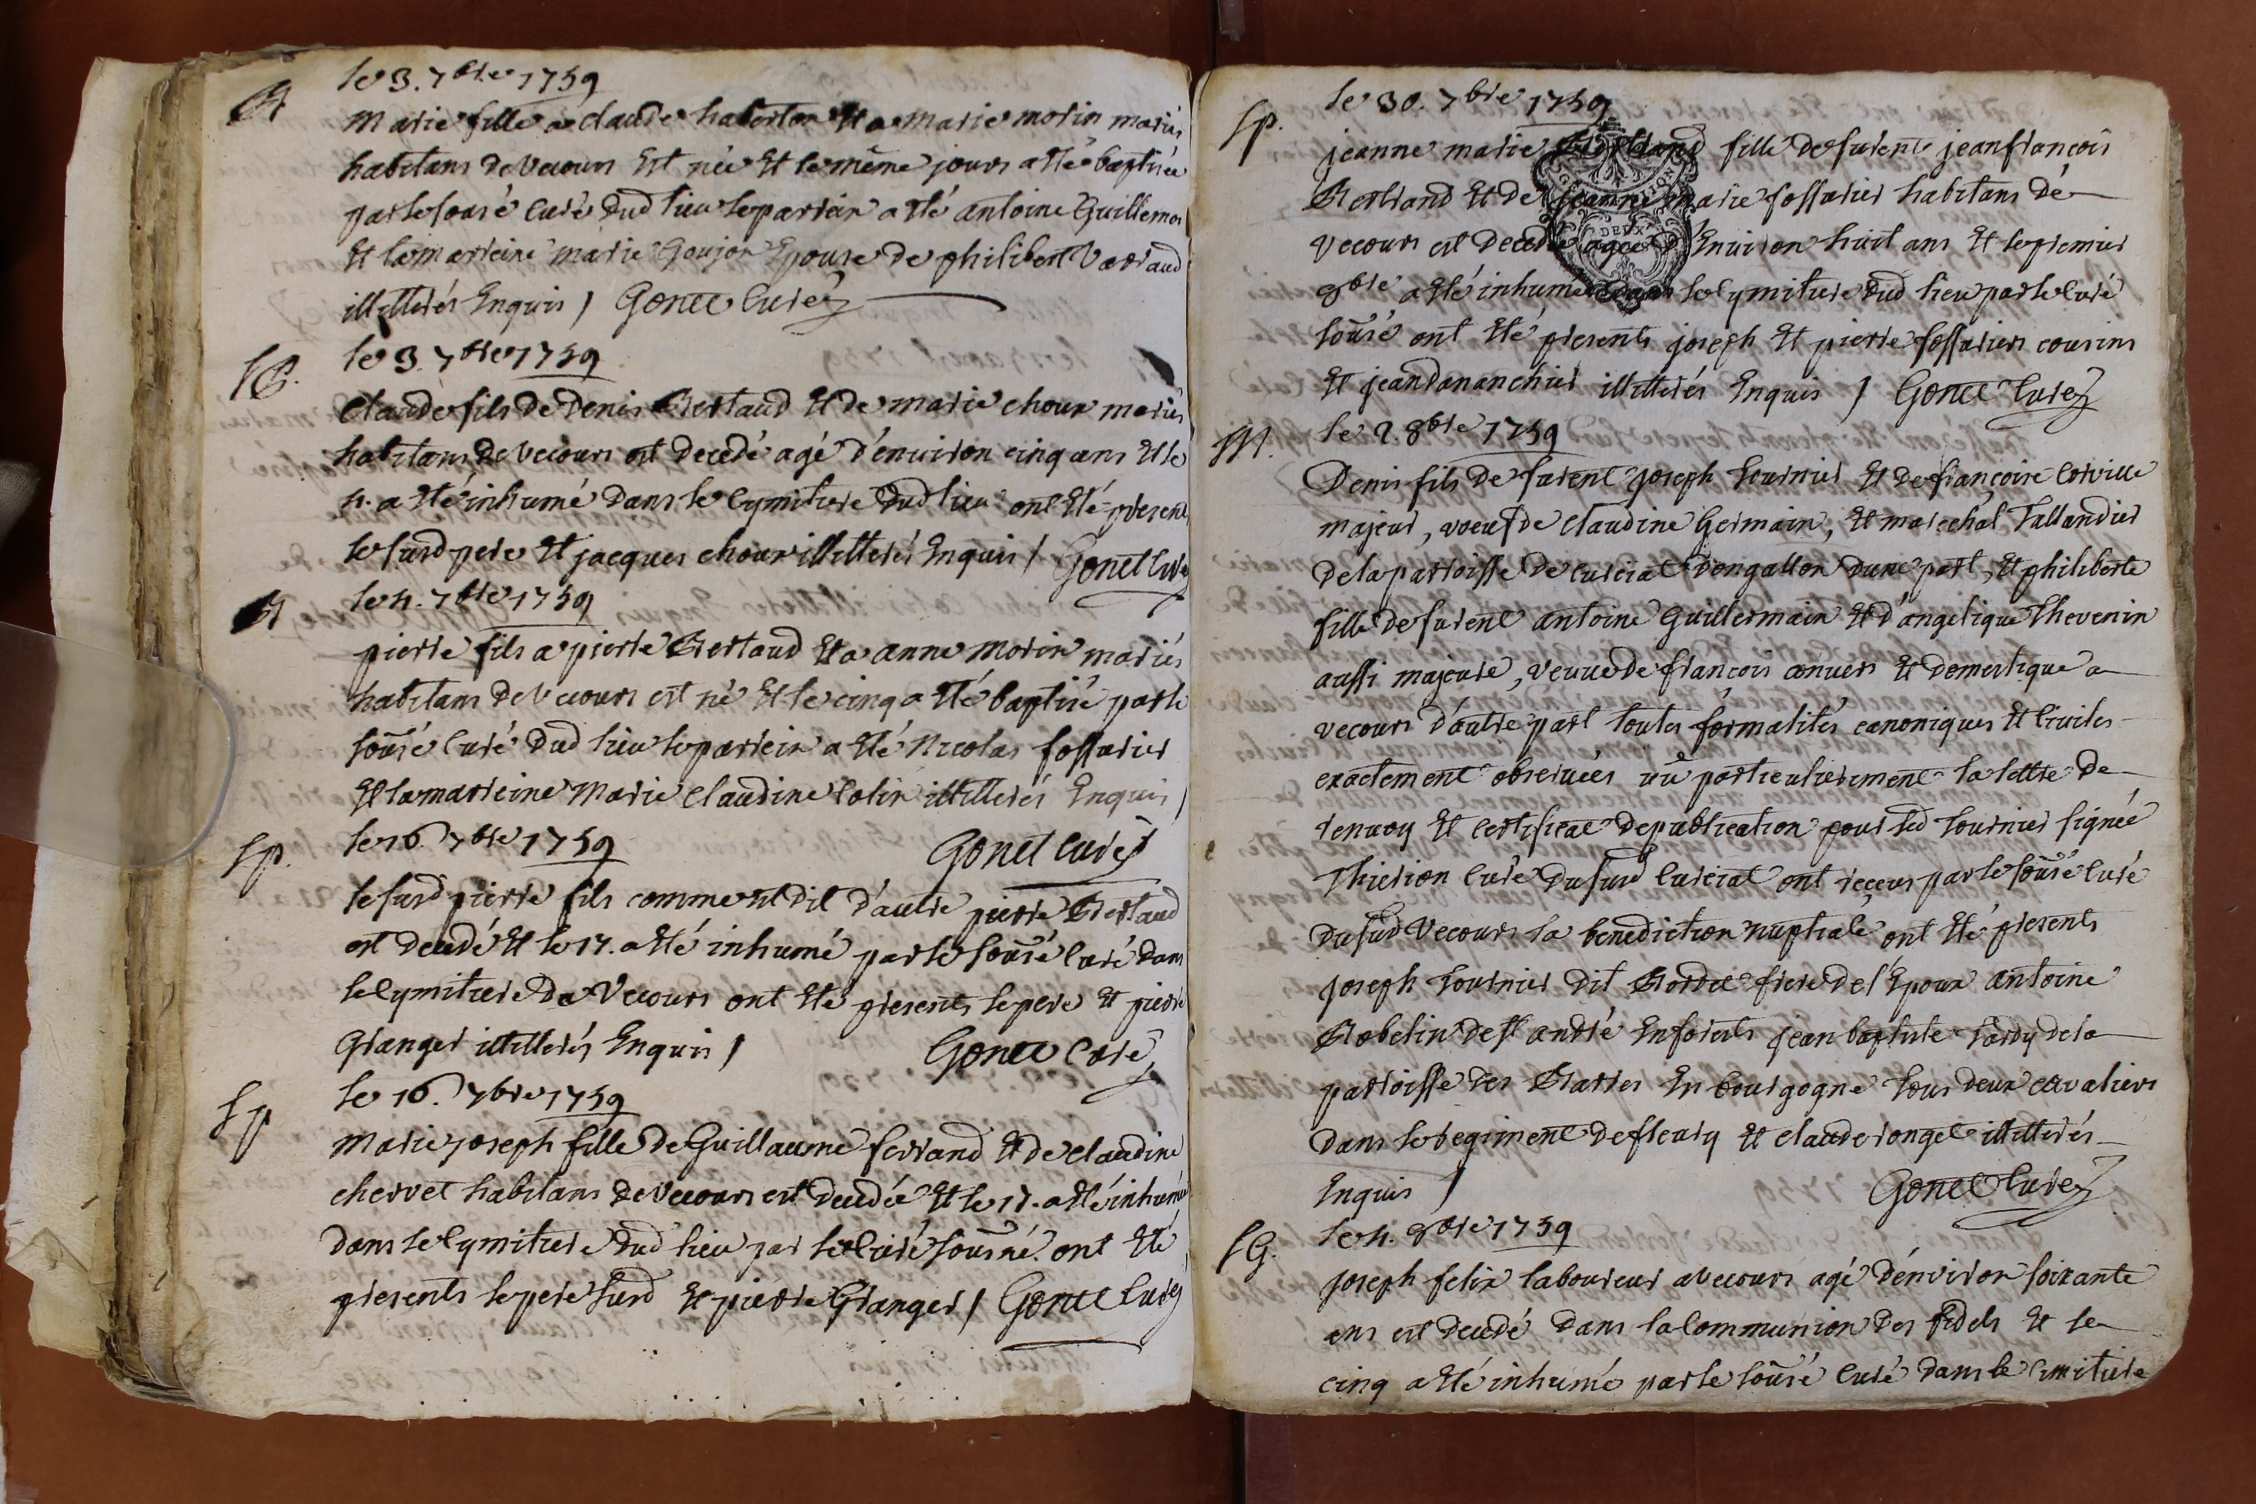 B
le 3. 7bre 1759
marie fille a claude haberton Et a marie morin mariés
habitans de vecours Est née Et le même jours a Eté baptisée
par le sousé curé dud lieu le parrein a Eté antoine Guillemo
Et la marreine marie Goujon Epouse de philibert Varraud
illitterés Enquis / Gonet Curé
SG.
le 3. 7bre 1759
Claude fils de Denis Bertaud Et de marie choux mariés
habitans de Vecours est decedé agé d'environ cinq ans Et le
4. a Eté inhumé dans le cymitiere dud lieu ont Eté present
le susd pere Et jacques choux illitterés Enquis / Gonet Curé
B
le 4. 7bre 1759
pierre fils a pierre Bertaud Et a anne morin mariés
habitans de Vecours est né Et le cinq a Eté baptisé par le
sousé curé dud lieu le parrein a Eté Nicolas fossurier
Et la marreine Marie Claudine Colin illitterés Enquis /
Gonet Curé
Sp.
le 16. 7bre 1759
le susd pierre fils comme est dit d'autre pierre Bertaud
est decedé Et le 17. a Eté inhumé par le sousé curé dans
le cymitiere de Vecours ont Eté presents le pere Et pierre
Granger illitterés Enquis / Gonet Curé
Sp
le 16. 7bre 1759
Marie joseph fille de Guillaume ferrand Et de claudine
chervet habitans de Vecours est decedée Et le 17. a Eté inhumé
dans le cymitiere dud lieu par le curé sousné ont Eté
presents le pere susd Et pierre Granger / Gonet Curé
Sp.
le 30. 7bre 1759
jeanne marie Bertrand fille de furent jean françois
Bertrand Et de jeanne marie fossurier habitans de
vecours est decedée agée d'Environ huit ans Et le premier
8bre a Eté inhumée dans le cymitiere dud lieu par le curé
sousé ont Eté presents joseph Et pierre fossuriers cousins
Et jean dananchier illitterés Enquis / Gonet Curé
M.
le 2. 8bre 1759
Denis fils de furent joseph tournier Et de françoise Corville
majeur, voeuf de Claudine Germain, Et marechal Tallandier
de la parroisse de curciat dongallon dune part, Et philiberte
fille de furent antoine Guillermain Et d'angelique Thevenin
aussi majeure, veuve de françois convers Et domestique a
vecours d'autre part toutes formalités canoniques Et Civiles
exactement observées vû particulierement la lettre de
renvoy Et certificat de publication pour led tournier signée
Thierion Curé dususd Curciat ont reçeus par le sousé Curé
dusud Vecours la benediction nuptiale ont Eté presents
joseph tournier dit Bordet frere de l'Epoux antoine
Gobelin de st andré En forests jean baptiste hardy de la
parroisse des Barres En bourgogne tous deux cavaliers
dans le regiment de fleury Et claude ronget illitterés
Enquis / Gonet Curé
SG.
le 4. 8bre 1759
joseph felix laboureur a vecours agé d'environ soixante
ans est decedé dans la Communion des fidels Et le
cinq a Eté inhumé par le sousé curé dans le cimitiere